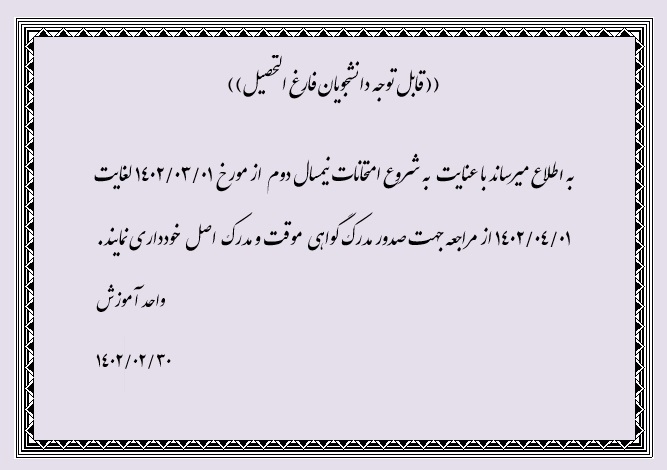 ((قابل توجه دانشجویان فارغ التحصیل))
به اطلاع میرساند با عنایت به شروع امتحانات نیمسال دوم از مورخ ۱٤۰۲/۰۳/۰۱ لغایت
۱٤۰۲/۰٤/۰۱ از مراجعه جهت صدور مدرک گواهی موقت و مدرک اصل خودداری نمایند.
واحد آموزش
۱٤۰۲/۰۲/۳۰